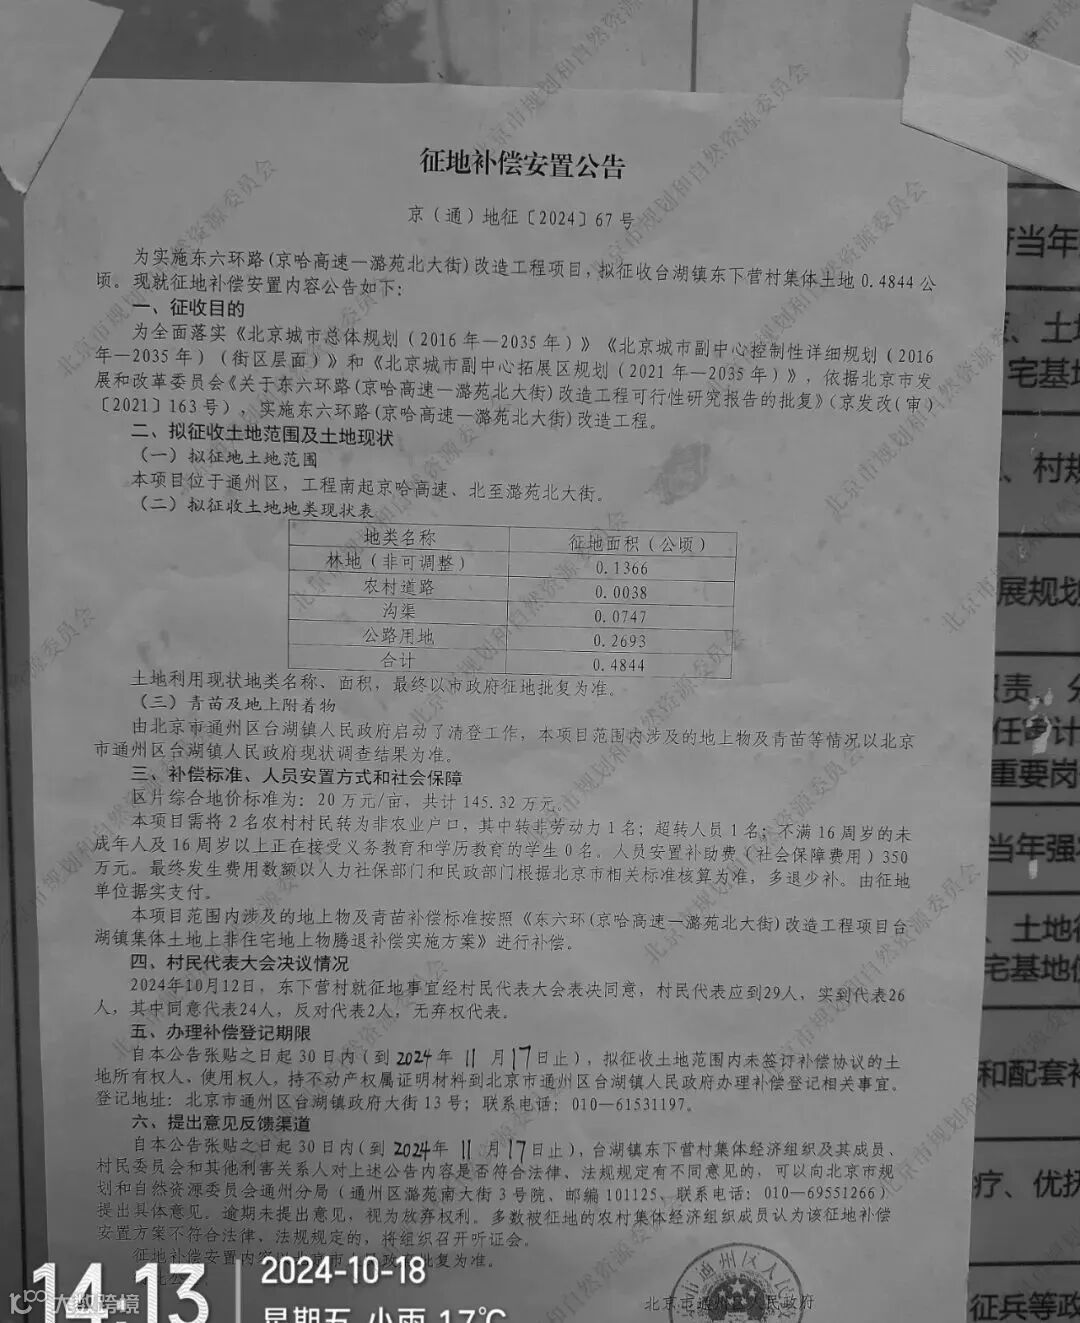 征地补偿安置公告
京（通）地征〔2024〕67号
为实施东六环路(京哈高速—潞苑北大街)改造工程项目，拟征收台湖镇东下营村集体土地0.4844公
顷。现就征地补偿安置内容公告如下：
一、征收目的
为全面落实《北京城市总体规划（2016年—2035年）》《北京城市副中心控制性详细规划（2016
年—2035年）（街区层面）》和《北京城市副中心拓展区规划（2021年—2035年）》，依据北京市发
展和改革委员会《关于东六环路(京哈高速—潞苑北大街)改造工程可行性研究报告的批复》（京发改(审)
〔2021〕163号），实施东六环路(京哈高速—潞苑北大街)改造工程。
二、拟征收土地范围及土地现状
（一）拟征地土地范围
本项目位于通州区，工程南起京哈高速、北至潞苑北大街。
（二）拟征收土地地类现状表
地类名称 征地面积（公顷）
林地（非可调整） 0.1366
农村道路 0.0038
沟渠 0.0747
公路用地 0.2693
合计 0.4844
土地利用现状地类名称、面积，最终以市政府征地批复为准。
（三）青苗及地上附着物
由北京市通州区台湖镇人民政府启动了清登工作，本项目范围内涉及的地上物及青苗等情况以北京
市通州区台湖镇人民政府现状调查结果为准。
三、补偿标准、人员安置方式和社会保障
区片综合地价标准为：20万元/亩，共计145.32万元。
本项目需将2名农村村民转为非农业户口，其中转非劳动力1名；超转人员1名；不满16周岁的未
成年人及16周岁以上正在接受义务教育和学历教育的学生0名。人员安置补助费（社会保障费用）350
万元。最终发生费用数额以人力社保部门和民政部门根据北京市相关标准核算为准，多退少补。由征地
单位据实支付。
本项目范围内涉及的地上物及青苗补偿标准按照《东六环(京哈高速—潞苑北大街)改造工程项目台
湖镇集体土地上非住宅地上物腾退补偿实施方案》进行补偿。
四、村民代表大会决议情况
2024年10月12日，东下营村就征地事宜经村民代表大会表决同意，村民代表应到29人，实到代表26
人，其中同意代表24人，反对代表2人，无弃权代表。
五、办理补偿登记期限
自本公告张贴之日起30日内（到2024年11月17日止），拟征收土地范围内未签订补偿协议的土
地所有权人、使用权人，持不动产权属证明材料到北京市通州区台湖镇人民政府办理补偿登记相关事宜。
登记地址：北京市通州区台湖镇政府大街13号；联系电话：010—61531197。
六、提出意见反馈渠道
自本公告张贴之日起30日内（到2024年11月17日止），台湖镇东下营村集体经济组织及其成员、
村民委员会和其他利害关系人对上述公告内容是否符合法律、法规规定有不同意见的，可以向北京市规
划和自然资源委员会通州分局（通州区潞苑南大街3号院、邮编101125、联系电话：010—69551266）
提出具体意见。逾期未提出意见，视为放弃权利。多数被征地的农村集体经济组织成员认为该征地补偿
安置方案不符合法律、法规规定的，将组织召开听证会。
征地补偿安置内容以北京市人民政府批复为准。
北京市通州区人民政府
14:13
2024-10-18
星期五 小雨 17℃
大数跨境
北京市规划和自然资源委员会
当年
、土地
宅基地
、村规
展规划
职责，分
任审计
重要岗
当年强
、土地征
宅基地使
和配套补
疗、优抚
征兵等政